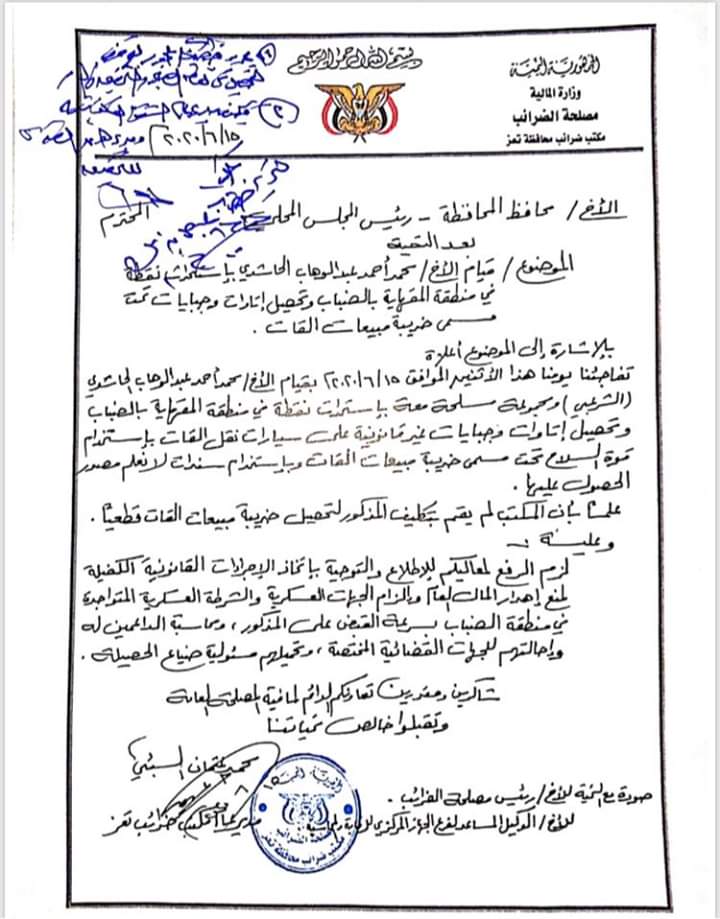 بسم الله الرحمن الرحيم
الجمهورية اليمنية
وزارة المالية
مصلحة الضرائب
مكتب ضرائب محافظة تعز
٢٠٢٠/٦/١٥
الأخ / محافظ المحافظة - رئيس المجلس المحلي المحترم
بعد التحية
الموضوع / قيام الأخ / محمد أحمد عبدالوهاب الحاشدي بإستحداث نقطة
في منطقة المقهاية بالضباب وتحصيل إتاوات وجبايات تحت
مسمى ضريبة مبيعات القات .
بالإشارة إلى الموضوع أعلاه
تفاجئنا يومنا هذا الأثنين الموافق ٢٠٢٠/٦/١٥ بقيام الأخ / محمد أحمد عبدالوهاب الحاشدي
(الشرعبي) ومجموعة مسلحة معه بإستحداث نقطة في منطقة المقهاية بالضباب
وتحصيل إتاوات وجبايات غير قانونية على سيارات نقل القات بإستخدام
قوة السلاح تحت مسمى ضريبة مبيعات القات وبإستخدام سندات لا نعلم مصدر
الحصول عليها .
علماً بأن المكتب لم يقم بتكليف المذكور لتحصيل ضريبة مبيعات القات قطعياً .
وعليه :-
لزم الرفع لمعاليكم للإطلاع والتوجية بإتخاذ الإجراءات القانونية الكفيلة
لمنع إهدار المال العام وإلزام الجهات العسكرية والشرطة العسكرية المتواجدة
في منطقة الضباب بسرعة القبض على المذكور ، ومحاسبة الداعمين له
وإحالتهم للجهات القضائية المختصة ، وتحميلهم مسئولية ضياع الحصيلة .
شاكرين ومقدرين تعاونكم الدائم لمافية المصلحة العامة
وتقبلوا خالص تحياتنا
محمد عثمان السبئي
مدير عام مكتب ضرائب تعز
صورة مع التحية للأخ / رئيس مصلحة الضرائب .
للأخ / الوكيل المساعد لفرع الجهاز المركزي للرقابة والمحاسبة
مصلحة الضرائب
مكتب ضرائب محافظة تعز